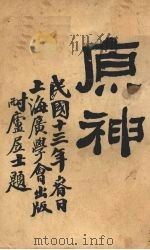 原神
民國十三年春日
上海廣學會出版
耐廬居士題